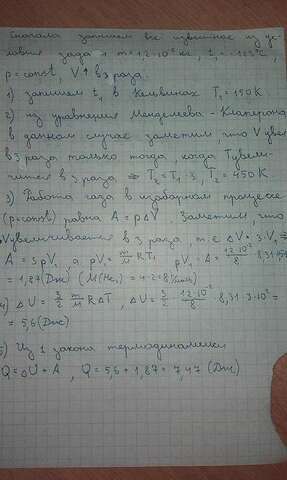 Сначала запишем все известное из ус-
ловия зада m = 12·10⁻² кг, t₁ = -123°C,
p = const, V↑ в 3 раза.
1) запишем t₁ в Кельвинах T₁ = 150К
2) из уравнения Менделеева-Клаперона
в данном случае заметим, что V увел
в 3 раза только тогда, когда T увели-
чится в 3 раза ⇒ T₂ = T₁·3, T₂ = 450К
3) Работа газа в изобарном процессе
(p=const) равна A = pΔV. Заметим, что
V увеличивается в 3 раза, т.е ΔV = 3·V₁ ⇒
A = 3pV₁, а pV₁ = m/μ RT₁ pV₁·A = 12·10⁻²/8 · 8,31·150
= 1,87 (Дж) (M(He₂) = 4·2 = 8 г/моль)
4) ΔU = 3/2 m/μ RΔT, ΔU = 3/2 · 12·10⁻²/8 · 8,31·3·10² =
= 5,6 (Дж)
5) Из 1 закона термодинамики
Q = ΔU + A, Q = 5,6 + 1,87 = 7,47 (Дж)